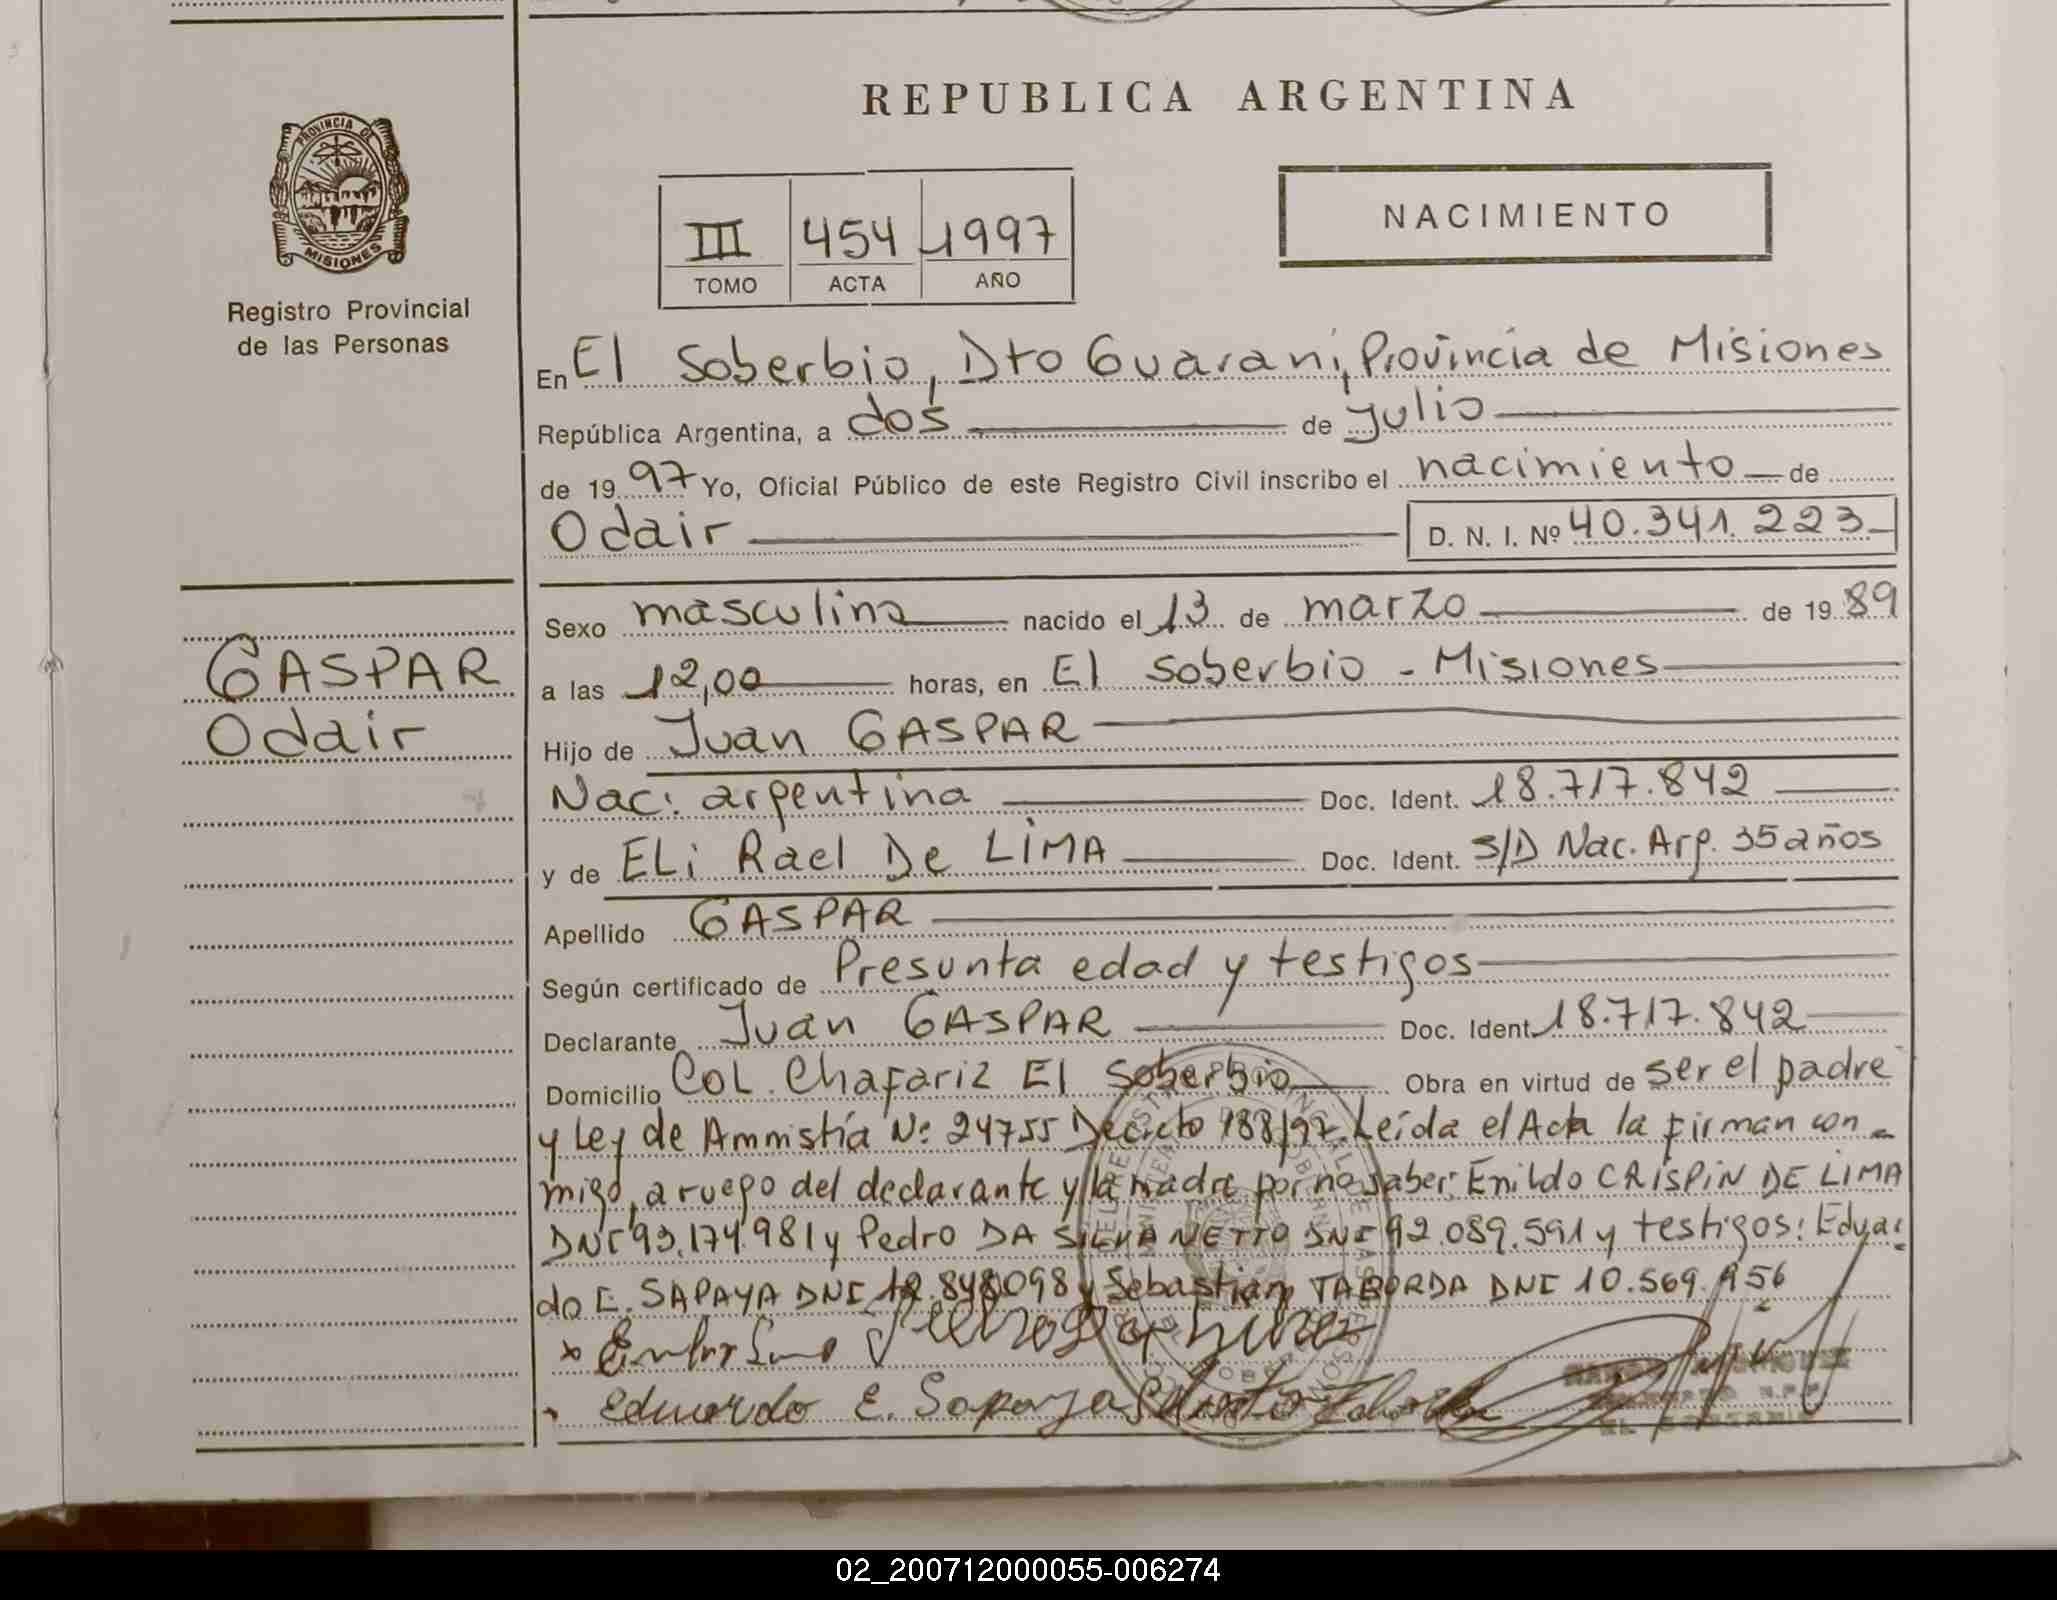 REPUBLICA ARGENTINA
PROVINCIA DE
MISIONES
Registro Provincial
de las Personas
III 454 1997
TOMO ACTA AÑO
NACIMIENTO
En El Soberbio, Dto Guarani, Provincia de Misiones
República Argentina, a dos de Julio
de 1997 Yo, Oficial Público de este Registro Civil inscribo el nacimiento de
Odair D. N. I. Nº 40.341.223
Sexo masculino nacido el 13 de marzo de 1989
GASPAR
Odair
a las 12,00 horas, en El Soberbio - Misiones
Hijo de Juan GASPAR
Nac: argentina Doc. Ident. 18.717.842
y de ELi Rael De LiMA Doc. Ident. S/D Nac. Arg. 35 años
Apellido GASPAR
Según certificado de Presunta edad y testigos
Declarante Juan GASPAR Doc. Ident. 18.717.842
Domicilio Col. Chafariz El Soberbio Obra en virtud de ser el padre
y Ley de Amnistía Nº 24755 Decreto 188/97. Leída el Acta la firman con-
migo, a ruego del declarante y la madre por no saber: Enildo CRiSPiN DE LiMA
DNI 93.174.981 y Pedro DA SILVA NETTO DNI 92.089.591 y testigos: Eduar
do E. SAPAYA DNI 12.848.098 y Sebastian TABORDA DNI 10.569.956
Eduardo E. Sapaya
02_200712000055-006274